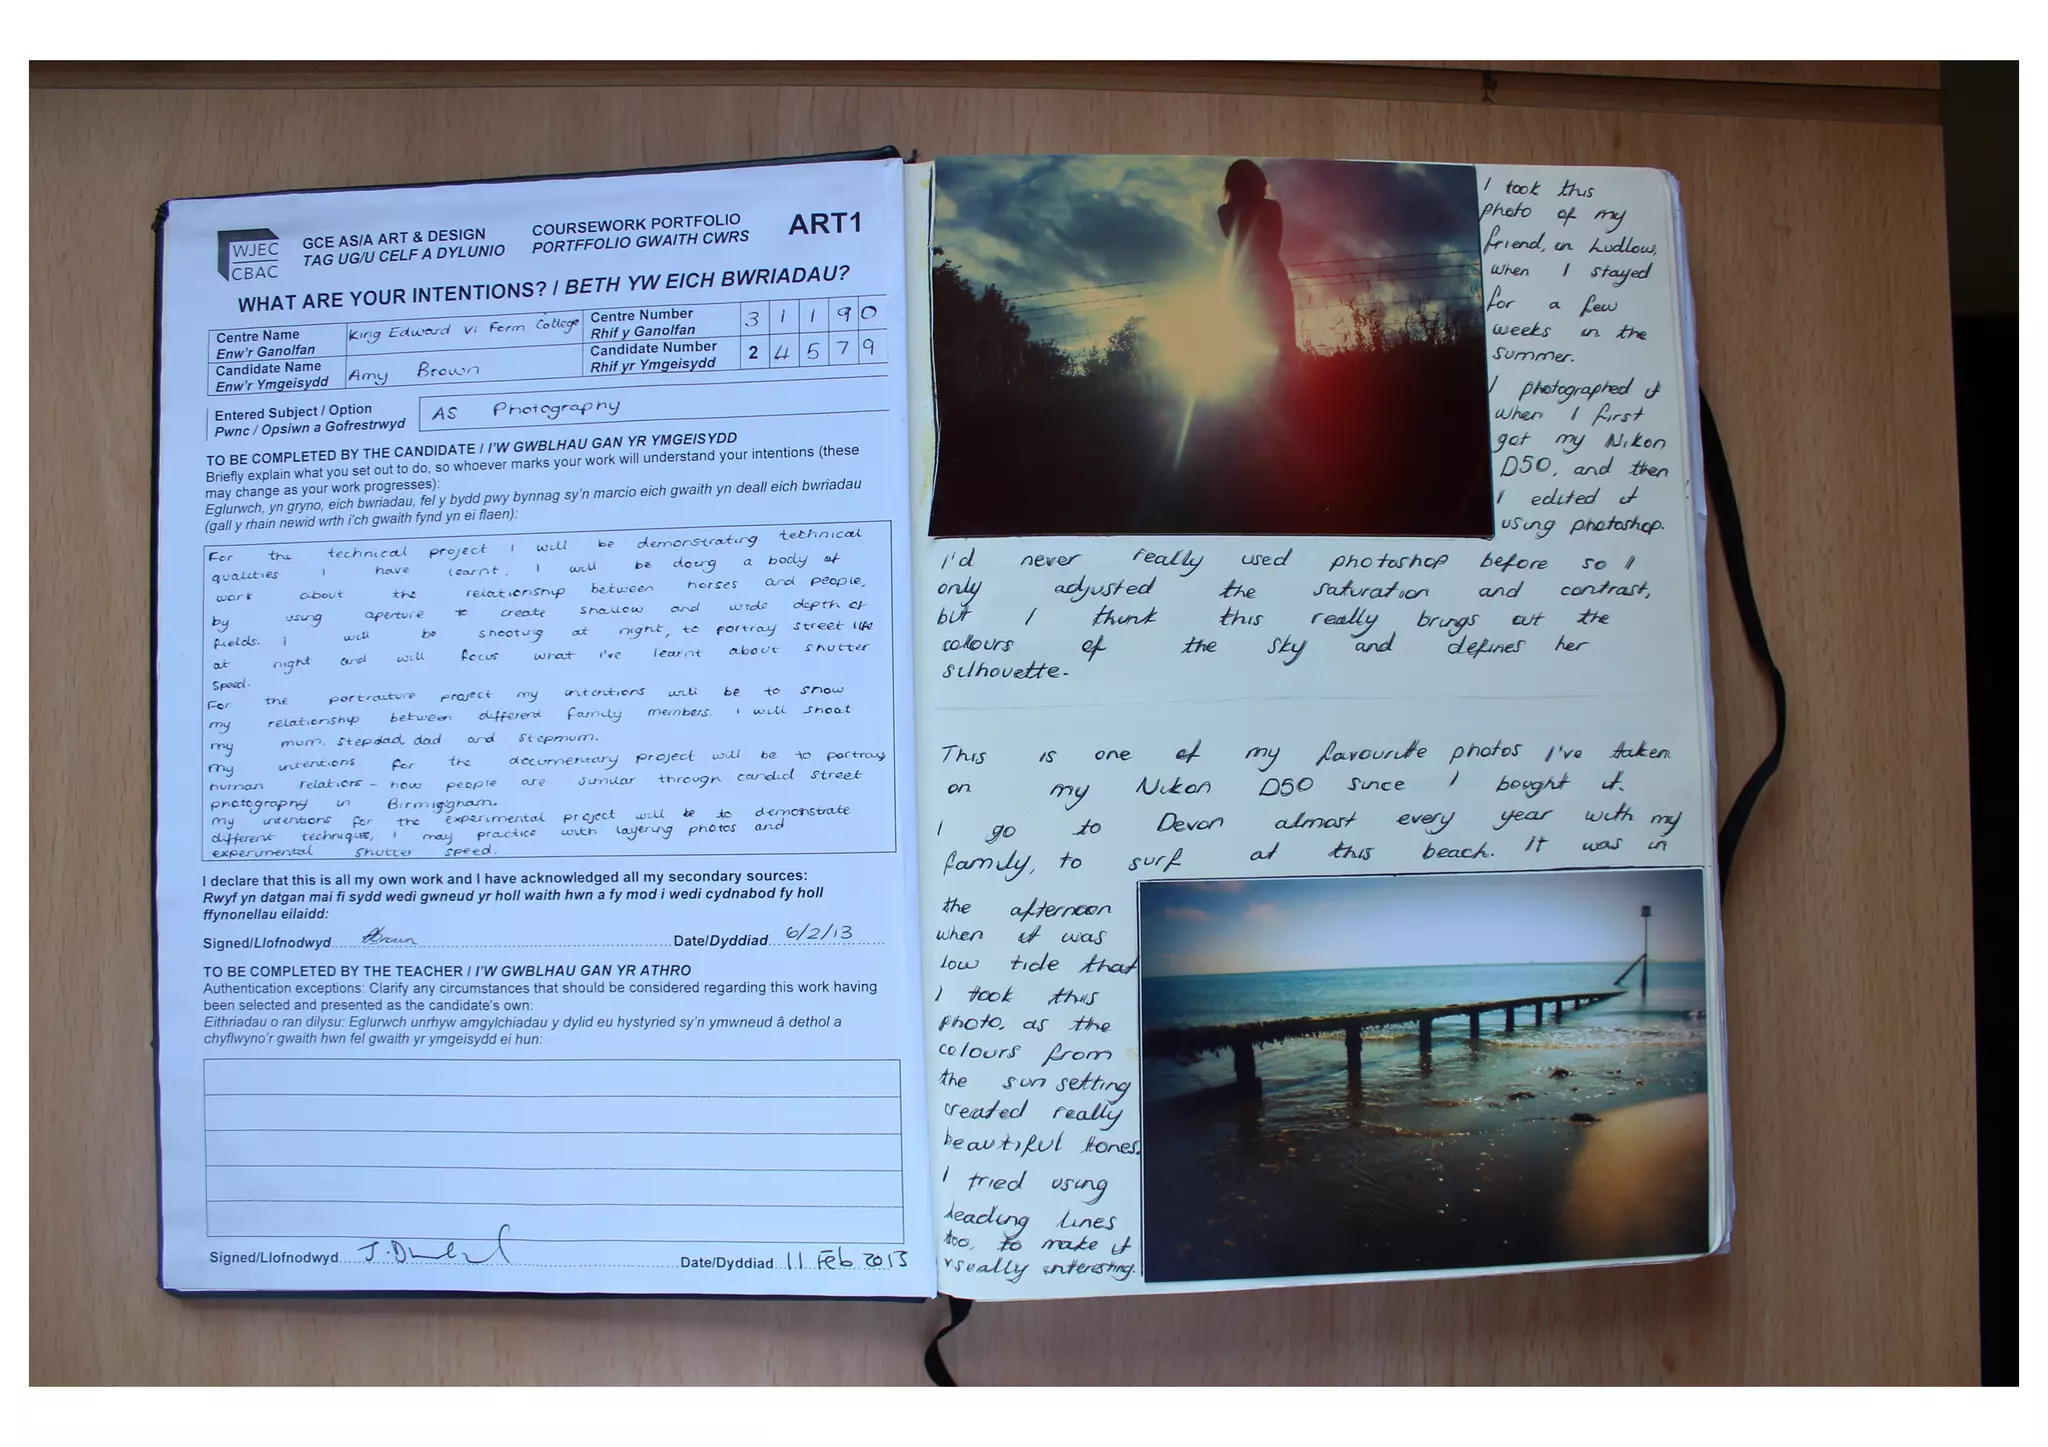 WJEC
CBAC
GCE AS/A ART & DESIGN
TAG UG/U CELF A DYLUNIO
COURSEWORK PORTFOLIO
PORTFFOLIO GWAITH CWRS
ART1
WHAT ARE YOUR INTENTIONS? / BETH YW EICH BWRIADAU?
Centre Name
Enw'r Ganolfan
King Edward VI Form College
Centre Number
Rhif y Ganolfan
3 1 1 9 0
Candidate Name
Enw'r Ymgeisydd
Amy Brown
Candidate Number
Rhif yr Ymgeisydd
2 4 5 7 9
Entered Subject / Option
Pwnc / Opsiwn a Gofrestrwyd
AS Photography
TO BE COMPLETED BY THE CANDIDATE / I'W GWBLHAU GAN YR YMGEISYDD
Briefly explain what you set out to do, so whoever marks your work will understand your intentions (these
may change as your work progresses):
Eglurwch, yn gryno, eich bwriadau, fel y bydd pwy bynnag sy'n marcio eich gwaith yn deall eich bwriadau
(gall y rhain newid wrth i'ch gwaith fynd yn ei flaen):
For the technical project I will be demonstrating technical
qualities I have learnt. I will be doing a body of
work about the relationship between horses and people,
by using aperture to create shallow and wide depth of
fields. I will be shooting at night, to portray street life
at night and will focus what I've learnt about shutter
speed.
For the portraiture project my intentions will be to show
my relationship between different family members. I will shoot
my mum, stepdad, dad and stepmum.
My intentions for the documentary project will be to portray
human relations - how people are similar through candid street
photography in Birmigngham.
My intentions for the experimental project will be to demonstrate
different technique, I may practice with layering photos and
experimental shutter speed.
I declare that this is all my own work and I have acknowledged all my secondary sources:
Rwyf yn datgan mai fi sydd wedi gwneud yr holl waith hwn a fy mod i wedi cydnabod fy holl
ffynonellau eilaidd:
Signed/Llofnodwyd ABrown Date/Dyddiad 6/2/13
TO BE COMPLETED BY THE TEACHER / I'W GWBLHAU GAN YR ATHRO
Authentication exceptions: Clarify any circumstances that should be considered regarding this work having
been selected and presented as the candidate's own:
Eithriadau o ran dilysu: Eglurwch unrhyw amgylchiadau y dylid eu hystyried sy'n ymwneud â dethol a
chyflwyno'r gwaith hwn fel gwaith yr ymgeisydd ei hun:
Signed/Llofnodwyd Date/Dyddiad 11 Feb 2013
I took this
photo of my
friend, in Ludlow,
when I stayed
for a few
weeks in the
summer.
I photographed it
when I first
got my Nikon
D50, and then
I edited it
using photoshop.
I'd never really used photoshop before so I
only adjusted the saturation and contrast,
but I think this really brings out the
colours of the sky and defines her
silhouette.
This is one of my favourite photos I've taken
on my Nikon D50 since I bought it.
I go to Devon almost every year with my
family, to surf at this beach. It was in
the afternoon
when it was
low tide that
I took this
photo, as the
colours from
the sun setting
created really
beautiful tones.
I tried using
leading lines
too, to make it
visually interesting.